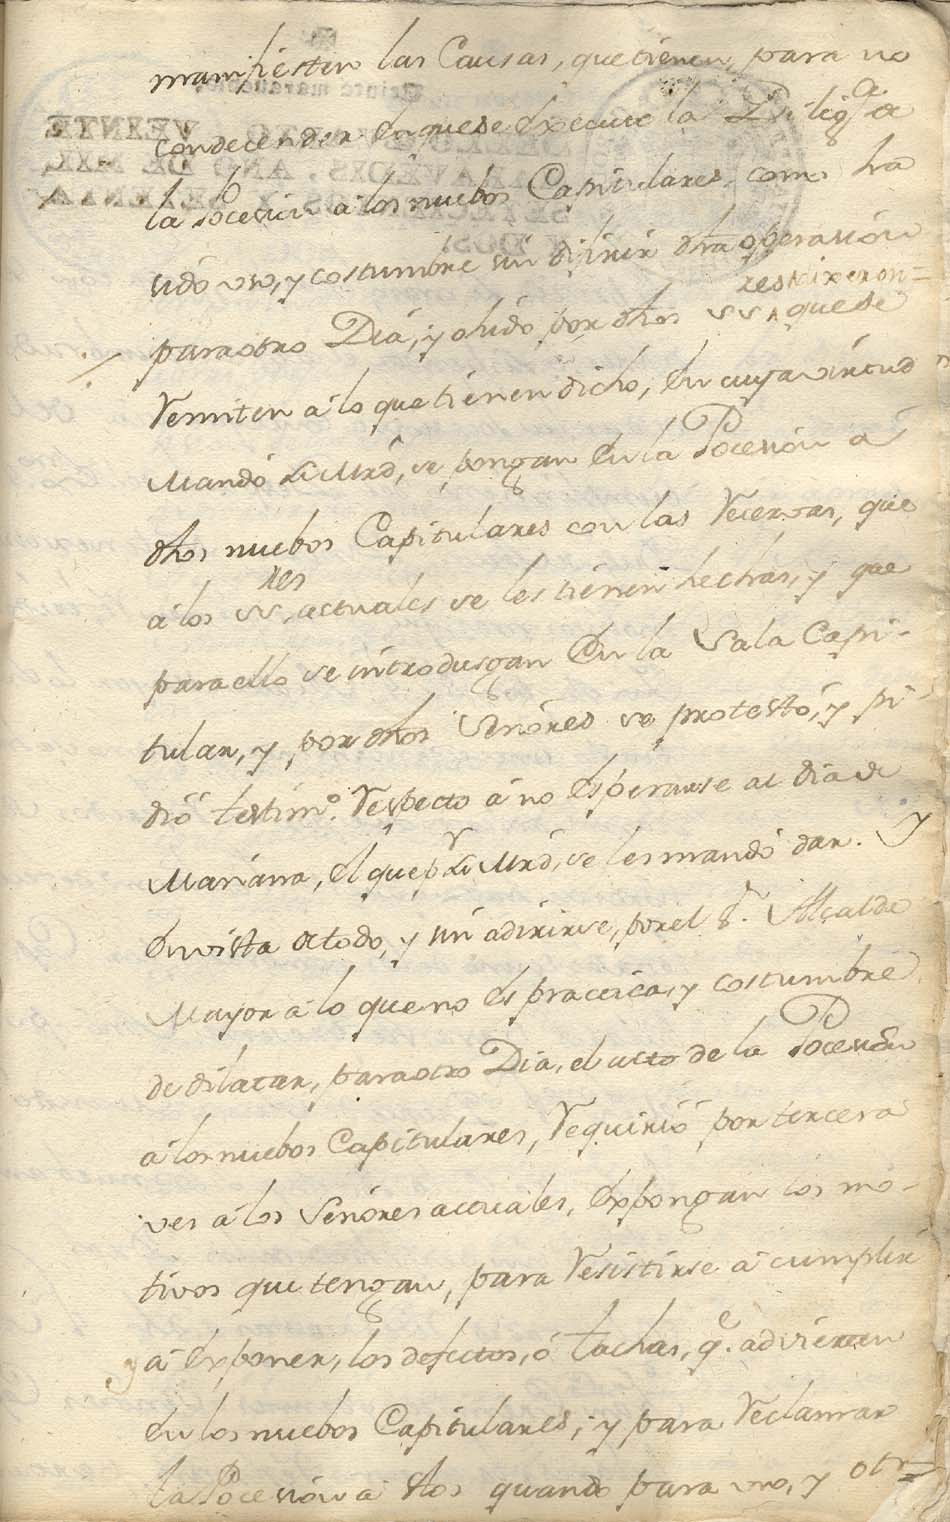 manifiesten las Causas, que tienen, para no
condecender en que se execute la Dilig.a de
la Pocecion a los nuebos Capitulares, como ha
sido uso, y costumbre sin diferir dha operación
respdixeron=
para otro Dia, y ohido por dhos SS. que se
Remiten â lo que tienen dicho, en cuya virtud
Mando su Mrd, se pongan en la Pocesion â
dhos nuebos Capitulares con las Recervas, que
â los SS.res actuales se les tienen hechas, y que
para ello se introdusgan en la Sala Capi-
tular, y por dhos Señores se protestó, y pi-
dió testim.o Respecto â no esperarse al dia de
Mañana, el que p.r su Mrd, se les mandó dar. Y
en vista de todo, y sin adirirse, por el S.r Alcalde
Mayor â lo que no es practica, y costumbre
de dilatar, para otro Dia, el acto de la Pocesion
â los nuebos Capitulares, Requirió por tercera
ves â los Señores actuales, expongan los mo-
tivos que tengan, para Resistirse â cumplir
y â exponer, los defectos, ó tachas, q.e advierten
en los nuebos Capitulares; y para Reclamar
la Pocesion â dhos quando para uso, y otr